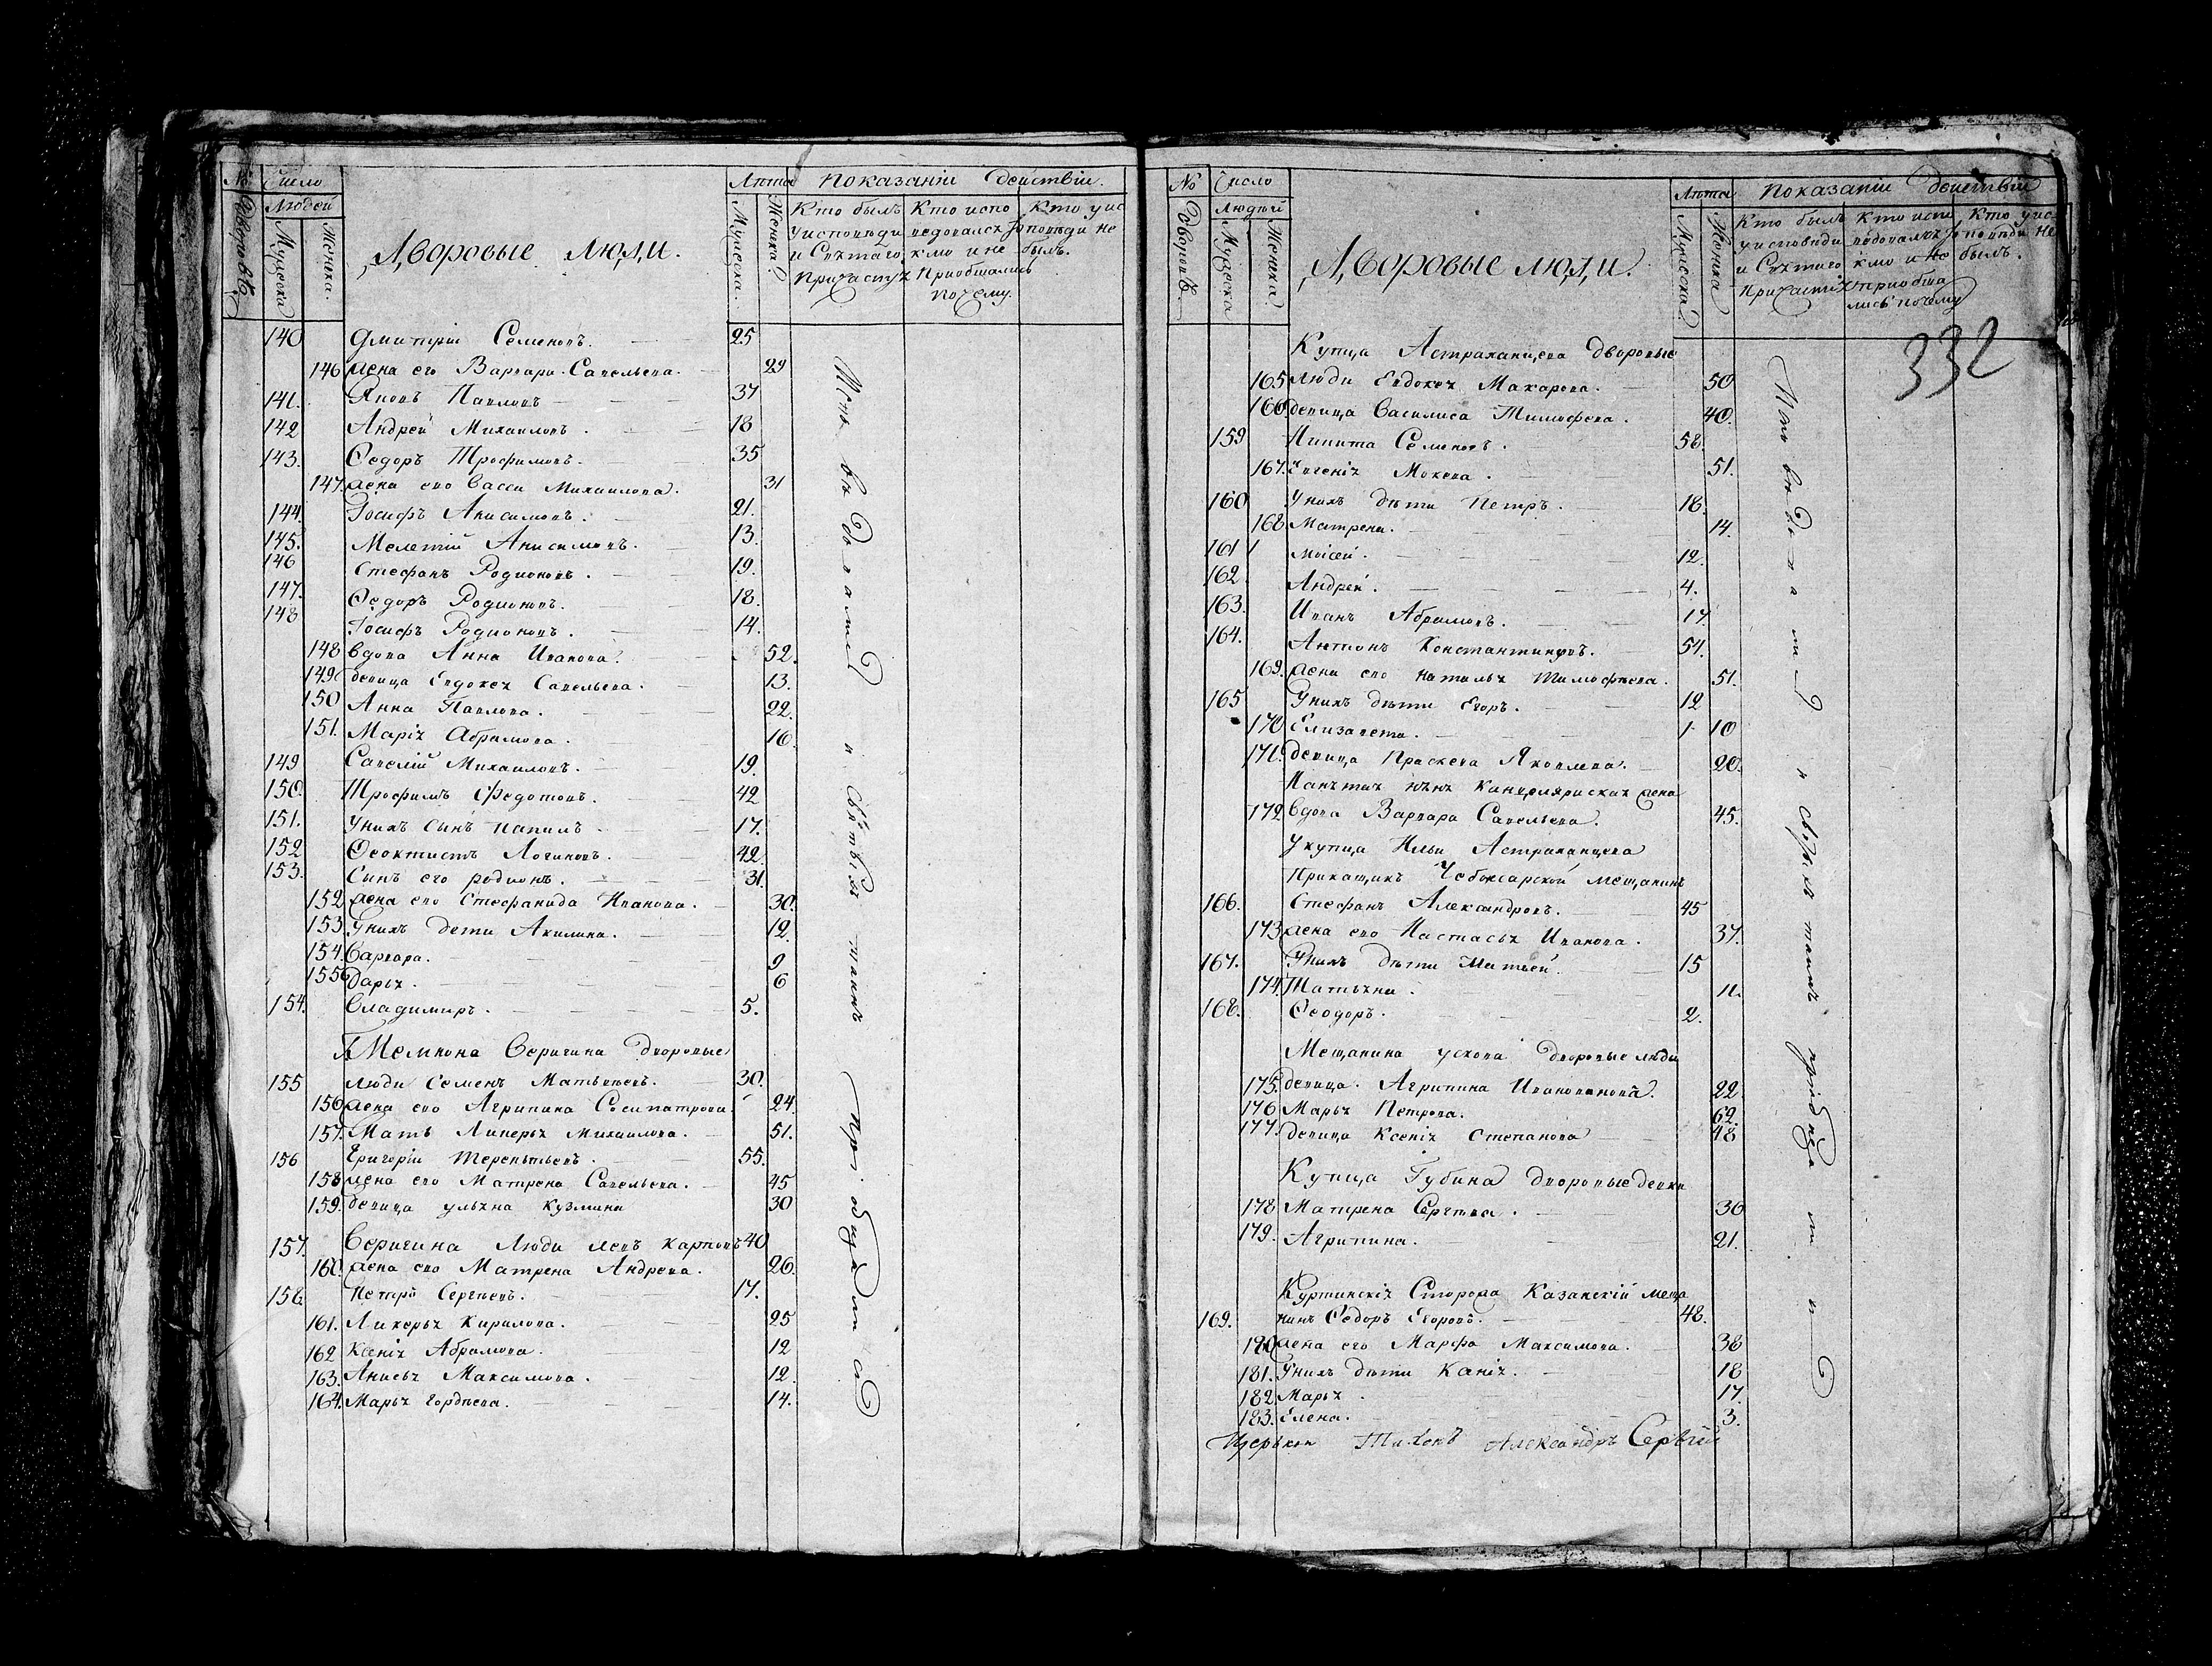 № дворовъ
Число Людей
Мужеска Женска
Дворовые люди.
Лѣта
Мужеска. Женска.
Показаніи действіи.
Кто былъ у исповѣди и Свѣтаго Причастія
Кто исповедовался кмо и не Приобщались почему.
Кто у исповѣди не былъ.
140 Дмитрій Семеновъ. 25
146 жена его Варвара Савельева. 29
141. Яковъ Павловъ 37
142 Андрей Михаиловъ. 18
143. Ѳедоръ Трофимовъ. 35
147. жена ево Васса Михаилова. 31
144. Іосифъ Анисимовъ. 21.
145. Мелетій Анисимовъ. 13.
146 Стефанъ Родионовъ. 19.
147. Ѳедоръ Родионовъ. 18.
148 Іосифъ Родионовъ. 14.
148 вдова Анна Иванова. 52.
149 девица Евдокея Савельева. 13.
150 Анна Павлова. 22.
151. Марія Абрамова. 16.
149 Савелій Михаиловъ. 19.
150. Трофимъ Федотовъ. 42
151. Унихъ сынъ 17.
152 Ѳеоктистъ Логиновъ. 42.
153. Сынъ его родионъ. 31.
152 жена ево Стефанида Иванова. 30.
153. Унихъ дети Акилина. 12.
154. Варвара. 9
155 Дарья. 6
154. Владимиръ. 5.
Г. Мемнона Веригина дворовые
155 люди Семенъ Матвѣевъ. 30.
156 жена ево Агрипина Сосипатрова. 24.
157. Мать Ликерья Михаилова. 51.
156 Григорій Терентьевъ. 55.
158 жена ево Матрена Савельева. 45
159. девица ульяна Кузмина 30
157. Веригина Люди левъ Карповъ 40
160. жена ево Матрена Андрева. 26.
158. Петръ Сергѣевъ. 17.
161. Ликерья Кирилова. 25
162 Ксенія Абрамова. 12
163. Анисья Максимова. 12.
164. Марья Гордѣева. 14.
№ дворовъ
Число Людей
Мужеска Женска
Дворовые люди.
Лѣта
Мужеска. Женска
Показаніи действіи
Кто былъ у исповѣди и Свѣтаго Причастія
Кто исповедовалъя кмо и не приобщались почему
Кто у исповѣди не былъ.
332
Купца Астраханцева дворовые
165 люди Евдокея Макарова. 50
166 девица Василиса Тимофева. 40.
159 Никита Семеновъ. 58.
167. Евгенія Мокева. 51.
160 Унихъ дѣти Петръ. 18.
168 Матрена. 14.
161 Моисей. 12.
162 Андрей. 4.
163. Иванъ Абрамовъ. 17
164. Антонъ Константиновъ. 54.
169. жена ево Наталья Тимофѣева. 51.
165 Унихъ дѣти Егоръ. 12
170 Елизавета. 10
171. девица Праскева Яковлева. 20.
Канцеляриская жена
172 вдова Варвара Савельева. 45.
У купца Ильи Астраханцева
Прикащикъ Чебоксарской мещанинъ
166. Стефанъ Александровъ. 45
173 жена ево Настасья Иванова. 37.
167. Унихъ дѣти Матвей. 15
174. Татьяна. 11.
168. Ѳеодоръ. 2.
Мещанина ускова дворовые люди
175. девица. Агрипина 22
176 Марья Петрова. 62.
177. девица Ксенія Степанова 48
Купца Губина дворовые девки
178 Матрена Сергѣва. 30
179. Агрипина. 21.
Куртинскія Сторожа Казанскій меща
169. нинъ Ѳедоръ Егоровъ. 48.
180 жена его Марфа Максимова. 38
181. Унихъ дѣти 18
182 Марья 17.
183. Елена. 3.
Церькви Тихонъ Александръ Сергій